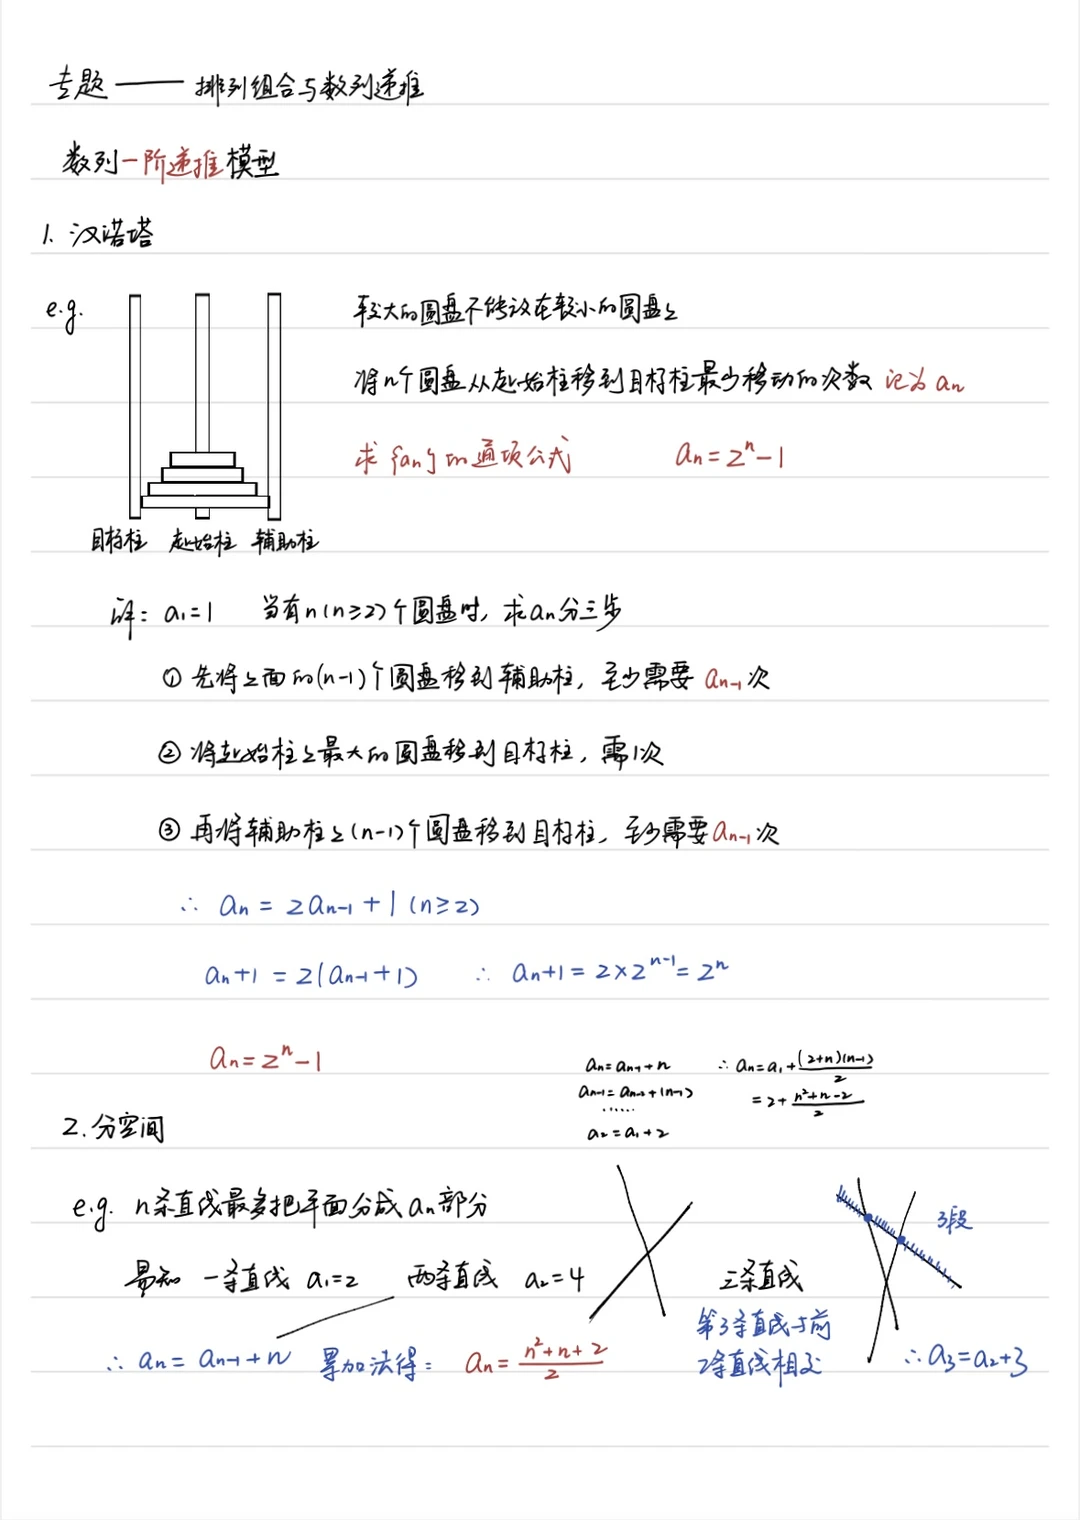 专题——排列组合与数列递推
数列一阶递推模型
1. 汉诺塔
e.g.
较大的圆盘不能放在较小的圆盘上
将n个圆盘从起始柱移到目标柱最少移动的次数 记为 an
求{an}的通项公式 an=2^n-1
目标柱 起始柱 辅助柱
解: a1=1 当有n(n≥2)个圆盘时, 求an分三步
① 先将上面的(n-1)个圆盘移到辅助柱, 至少需要 an-1次
② 将起始柱上最大的圆盘移到目标柱, 需1次
③ 再将辅助柱上(n-1)个圆盘移到目标柱, 至少需要an-1次
∴ an = 2an-1 + 1 (n≥2)
an+1 = 2(an-1+1) ∴ an+1 = 2×2^(n-1) = 2^n
an=2^n-1
an=an-1+n
an-1=an-2+(n-1)
……
a2=a1+2
∴ an=a1+(2+n)(n-1)/2
=2+(n²+n-2)/2
2. 分空间
e.g. n条直线最多把平面分成an部分
易知 一条直线 a1=2 两条直线 a2=4 三条直线
3段
第3条直线与前
2条直线相交
∴ a3=a2+3
∴ an= an-1+n 累加法得: an=(n²+n+2)/2